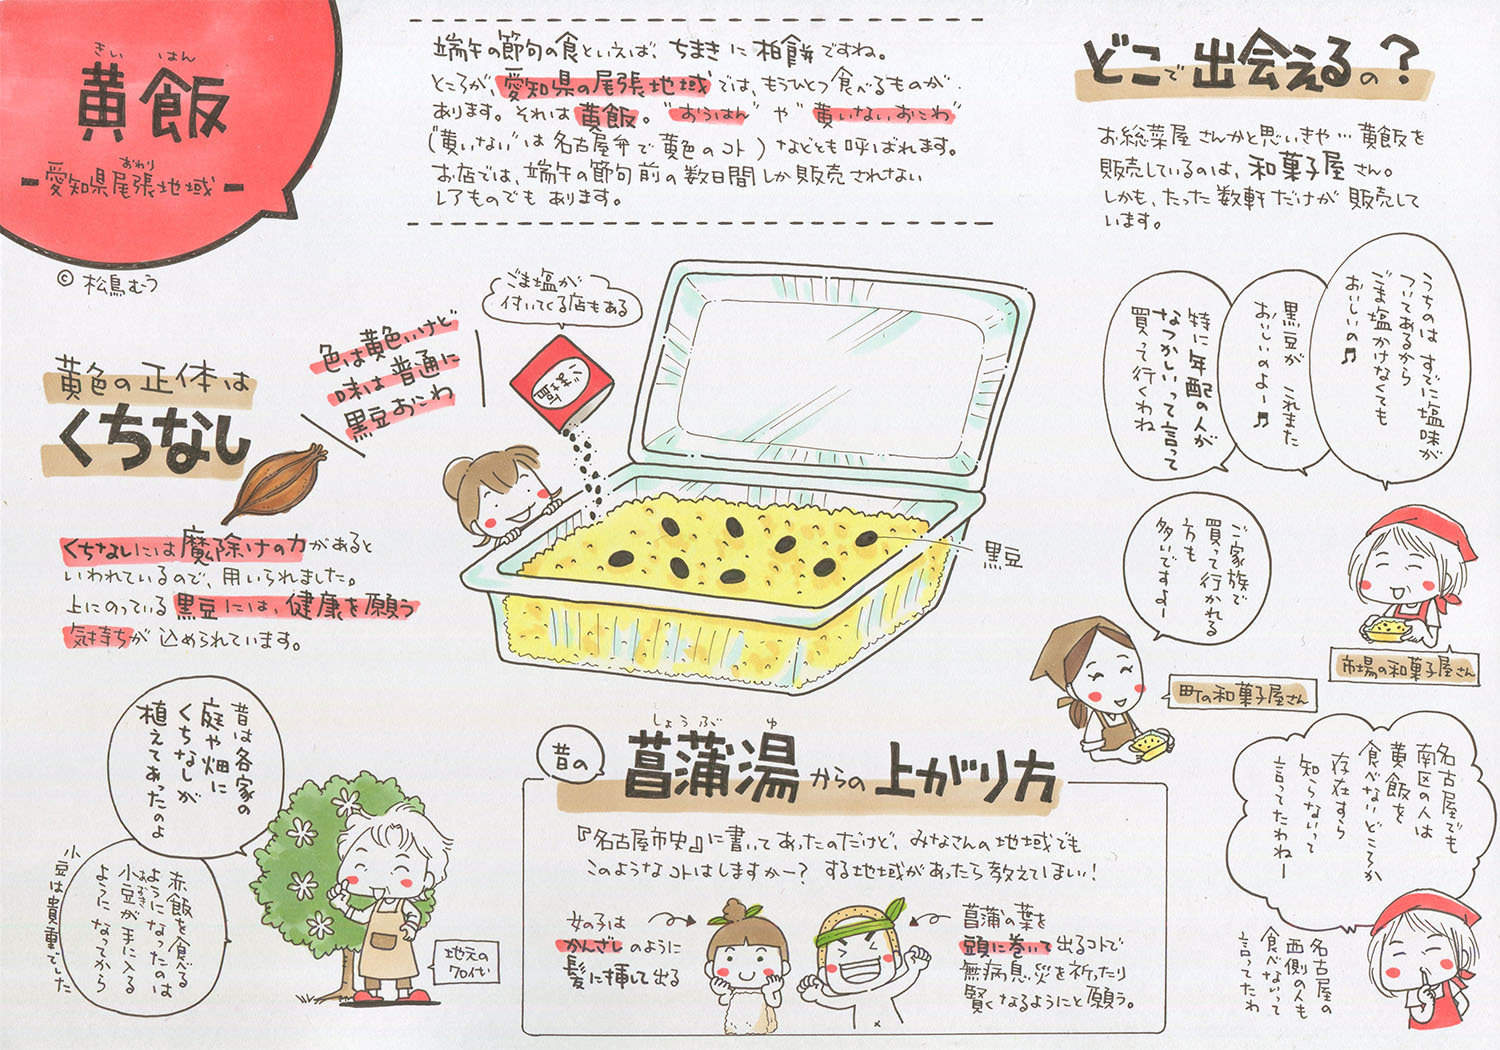 きい はん
黄飯
おわり
愛知県尾張地域
© 松鳥むう
端午の節句の食といえば、ちまきに柏餅ですね。
ところが、愛知県の尾張地域では、もうひとつ食べるものが
あります。それは黄飯。"おうはん"や"黄いないおこわ"
("黄いない"は名古屋弁で黄色のコト)などとも呼ばれます。
お店では、端午の節句前の数日間しか販売されない
レアものでもあります。
どこで出会えるの?
お総菜屋さんかと思いきや…黄飯を
販売しているのは、和菓子屋さん。
しかも、たった数軒だけが販売して
います。
うちのは すでに塩味が
ついてあるから
ごま塩かけなくても
おいしいの♫
黒豆が これまた
おいしいのよー♫
特に年配の人が
なつかしいって言って
買って行くわね
市場の和菓子屋さん
ご家族で
買って行かれる
方も
多いですよー
町の和菓子屋さん
名古屋でも
南区の人は
黄飯を
食べないどころか
存在すら
知らないって
言ってたわねー
名古屋の
西側の人も
食べないって
言ってたわ
ごま塩が
付いてくる店もある
ごま塩
色は黄色いけど
味は普通に
黒豆おこわ
黒豆
黄色の正体は
くちなし
くちなしには魔除けの力があると
いわれているので、用いられました。
上にのっている黒豆には、健康を願う
気持ちが込められています。
昔は各家の
庭や畑に
くちなしが
植えてあったのよ
赤飯を食べる
ようになったのは
あずき
小豆が手に入る
ようになってから
小豆は貴重でした
地元の
70代
昔の
しょうぶ ゆ
菖蒲湯からの上がり方
『名古屋市史』に書いてあったのだけど、みなさんの地域でも
このようなコトはしますかー? する地域があったら教えてほしい!
女の子は
かんざしのように
髪に挿して出る
菖蒲の葉を
頭に巻いて出るコトで
無病息災を祈ったり
賢くなるようにと願う。